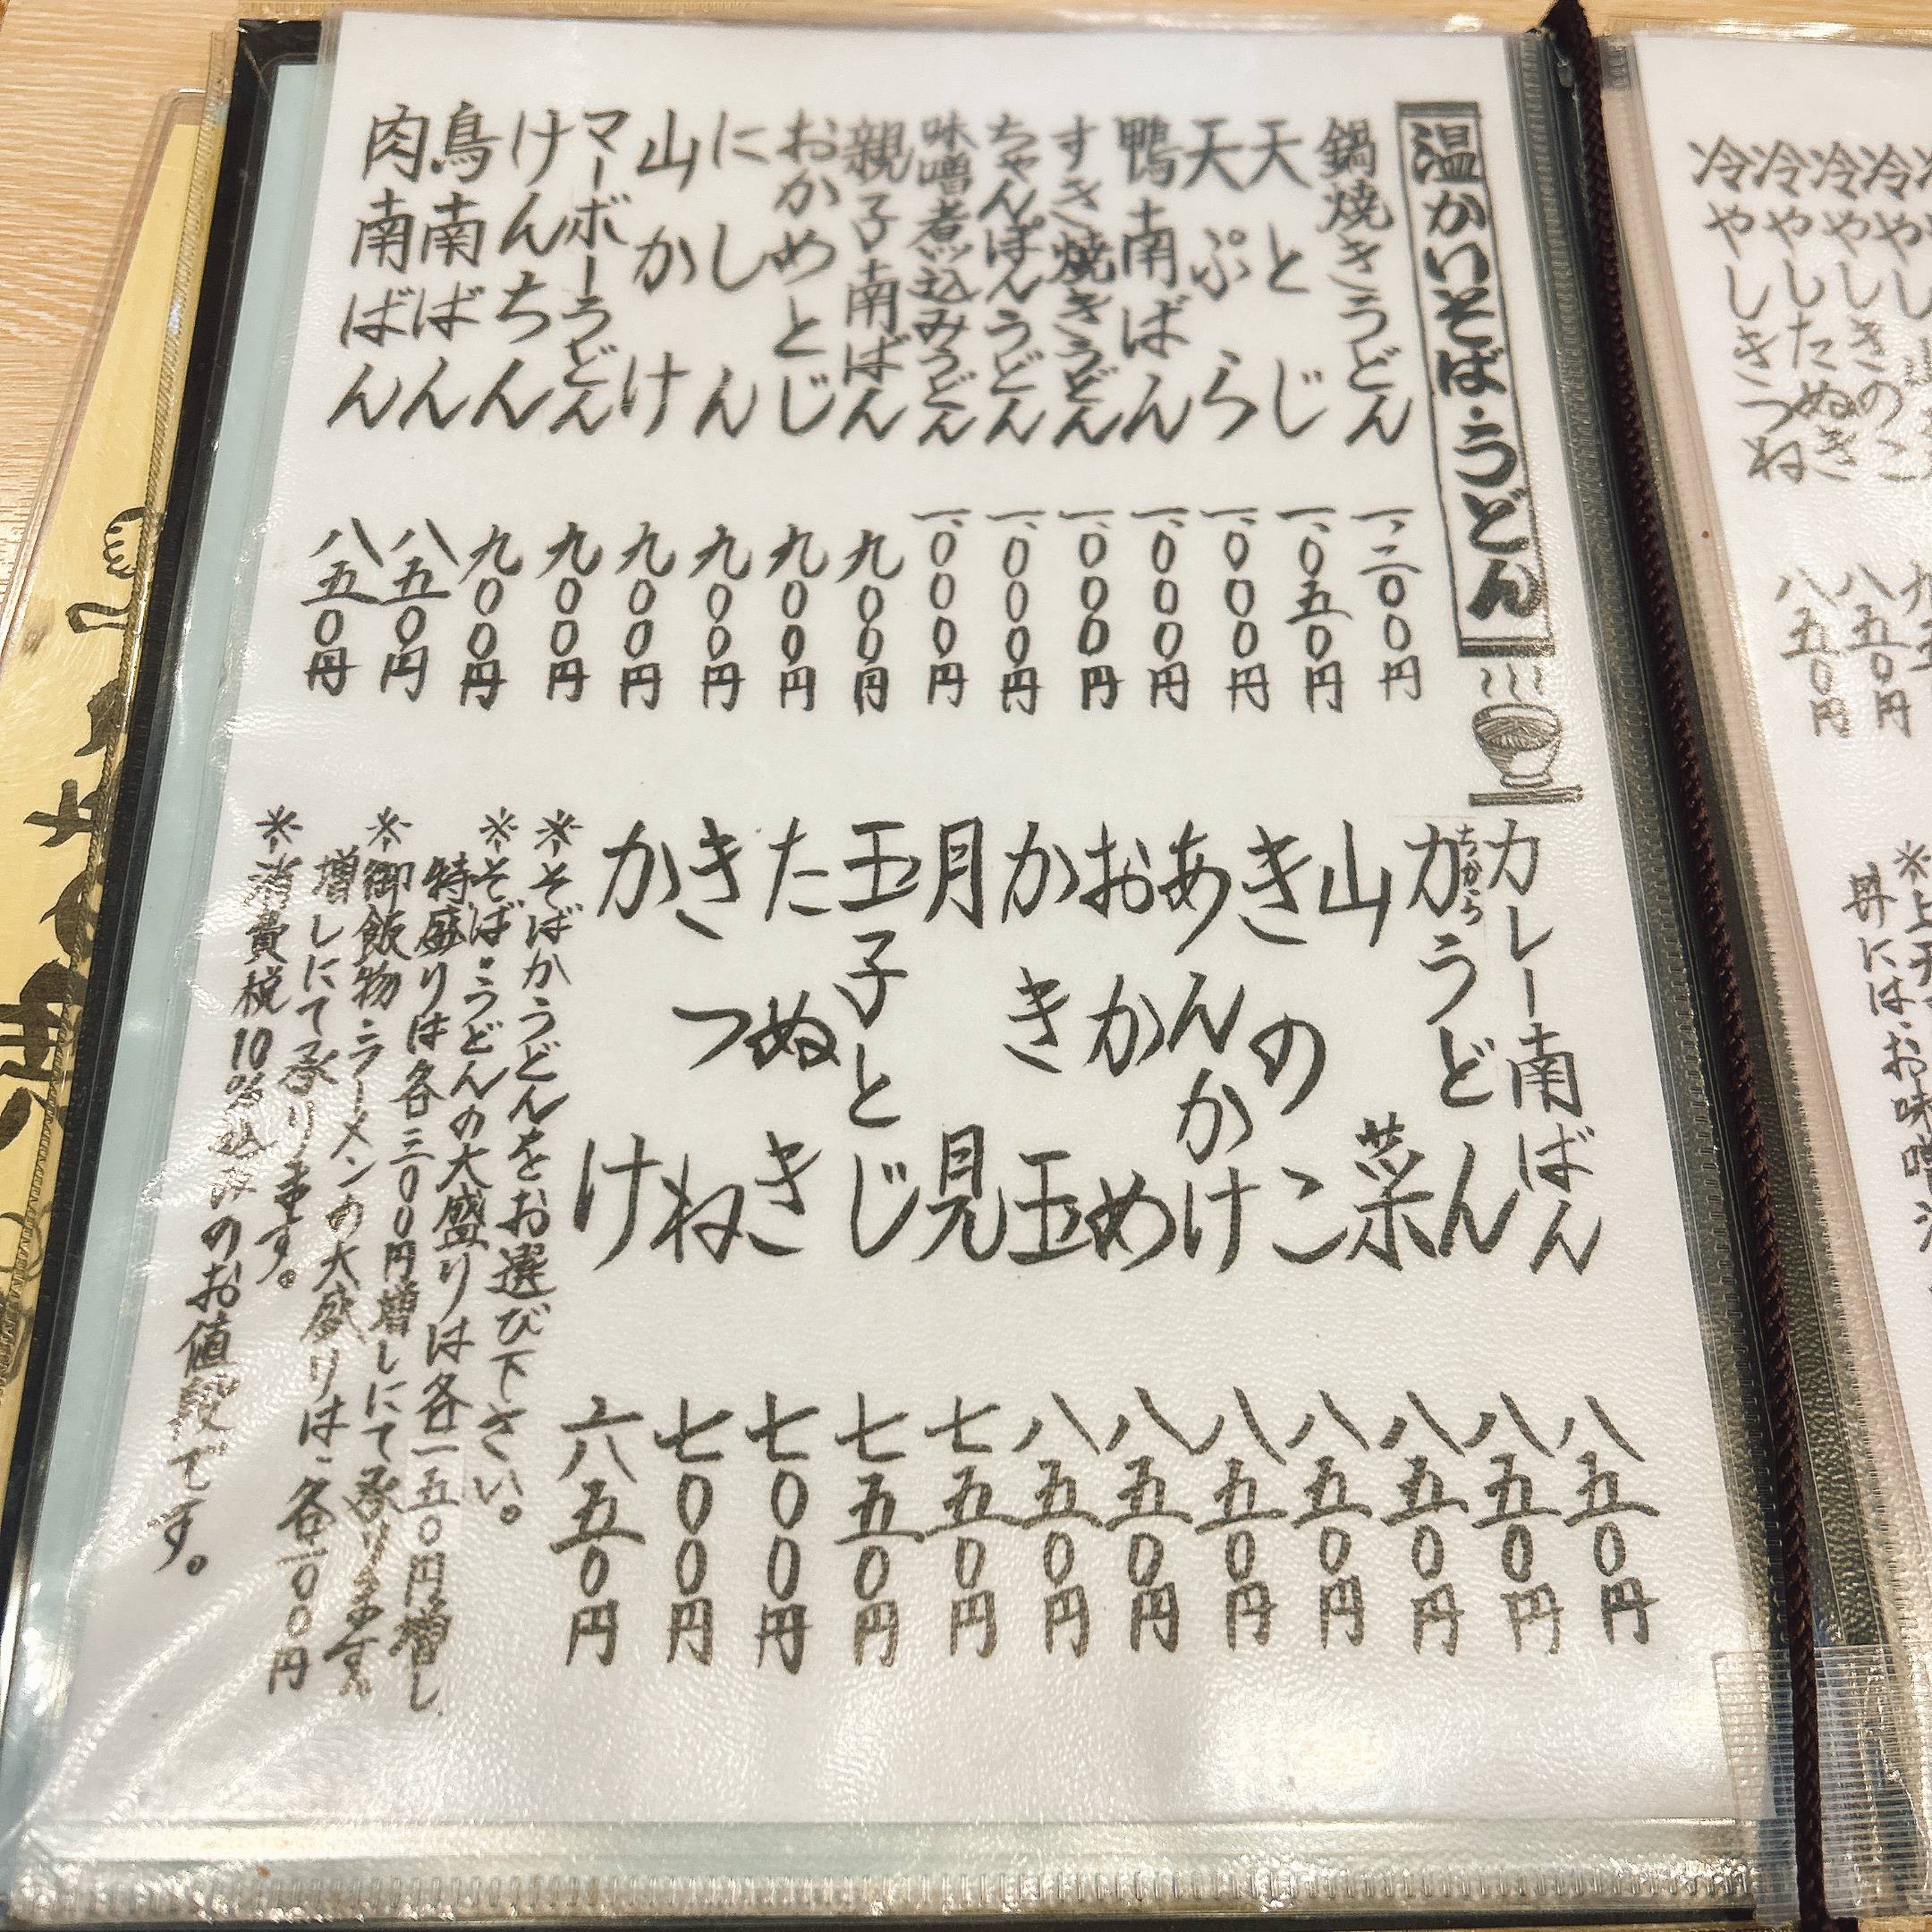 冷やしきのこ
冷やしたぬき 八五0円
冷やしきつね 八五0円
丼にはお味噌
温かいそば・うどん
鍋焼きうどん 一、二00円
天とじ 一、0五0円
天ぷら 一、000円
鴨南ばん 一、000円
すき焼きうどん 一、000円
ちゃんぽんうどん 一、000円
味噌煮込みうどん 一、000円
親子南ばん 九00円
おかめとじ 九00円
にしん 九00円
山かけ 九00円
マーボーうどん 九00円
けんちん 九00円
鳥南ばん 八五0円
肉南ばん 八五0円
カレー南ばん 八五0円
ちから
力うどん 八五0円
山菜 八五0円
きのこ 八五0円
あんかけ 八五0円
おかめ 八五0円
かき玉 八五0円
月見 七五0円
玉子とじ 七五0円
たぬき 七00円
きつね 七00円
かけ 六五0円
※そばかうどんをお選び下さい。
※そば・うどんの大盛りは各一五0円増し
特盛りは各三00円増しにて承ります。
※御飯物・ラーメンの大盛りは、各
増しにて承ります。
※消費税10%込みのお値段です。